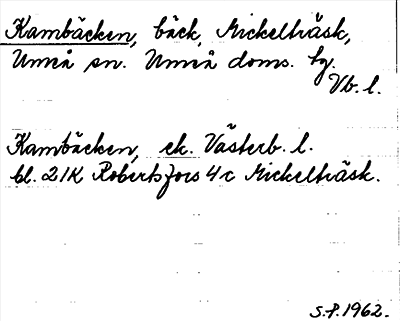 Kambäcken, bäck, Mickelträsk,
Umeå sn. Umeå doms. hg.
Vb. l.
Kambäcken, ek. Västerb. l.
bl. 21K Robertsfors 4c Mickelträsk.
S.P. 1962.